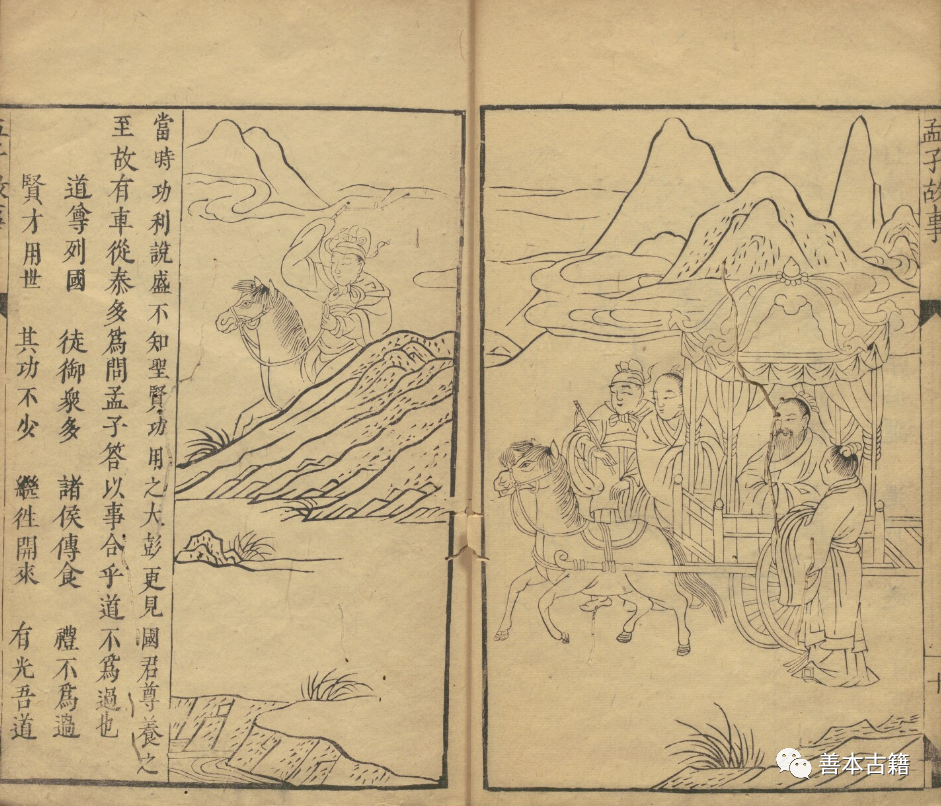 孟子故事
十
當時功利說盛不知聖賢功用之大彭更見國君尊養之
至故有車從泰多爲問孟子答以事合乎道不爲過也
道尊列國 徒御衆多 諸侯傳食 禮不爲過
賢才用世 其功不少 繼徃開來 有光吾道
善本古籍